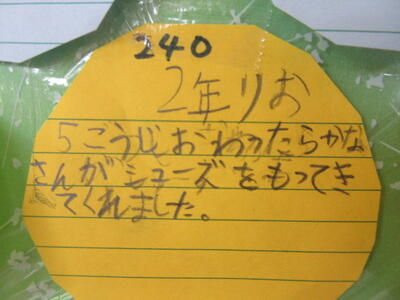 240
2年りお
5ごうじおわったらかな
さんがシューズをもってき
てくれました。